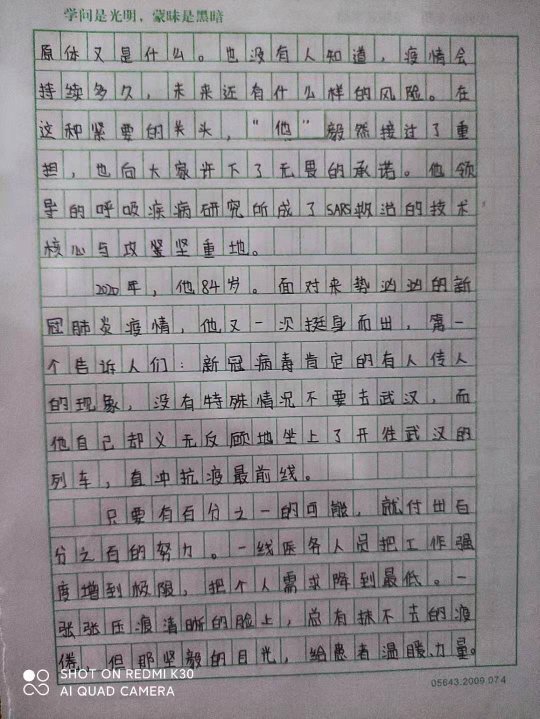 学问是光明，蒙昧是黑暗
原体又是什么。也没有人知道，疫情会
持续多久，未来还有什么样的风险。在
这种紧要的关头，“他”毅然接过了重
担，也向大家许下了无畏的承诺。他领
导的呼吸疾病研究所成了SARS救治的技术
核心与攻坚重地。
2020年，他84岁。面对来势汹汹的新
冠肺炎疫情，他又一次挺身而出，第一
个告诉人们：新冠病毒肯定的有人传人
的现象，没有特殊情况不要去武汉，而
他自己却义无反顾地坐上了开往武汉的
列车，直冲抗疫最前线。
只要有百分之一的可能，就付出百
分之百的努力。一线医务人员把工作强
度增到极限，把个人需求降到最低。一
张张压痕清晰的脸上，总有抹不去的疲
倦，但那坚毅的目光，给患者温暖、力量。
SHOT ON REDMI K30
AI QUAD CAMERA
05643.2009.074